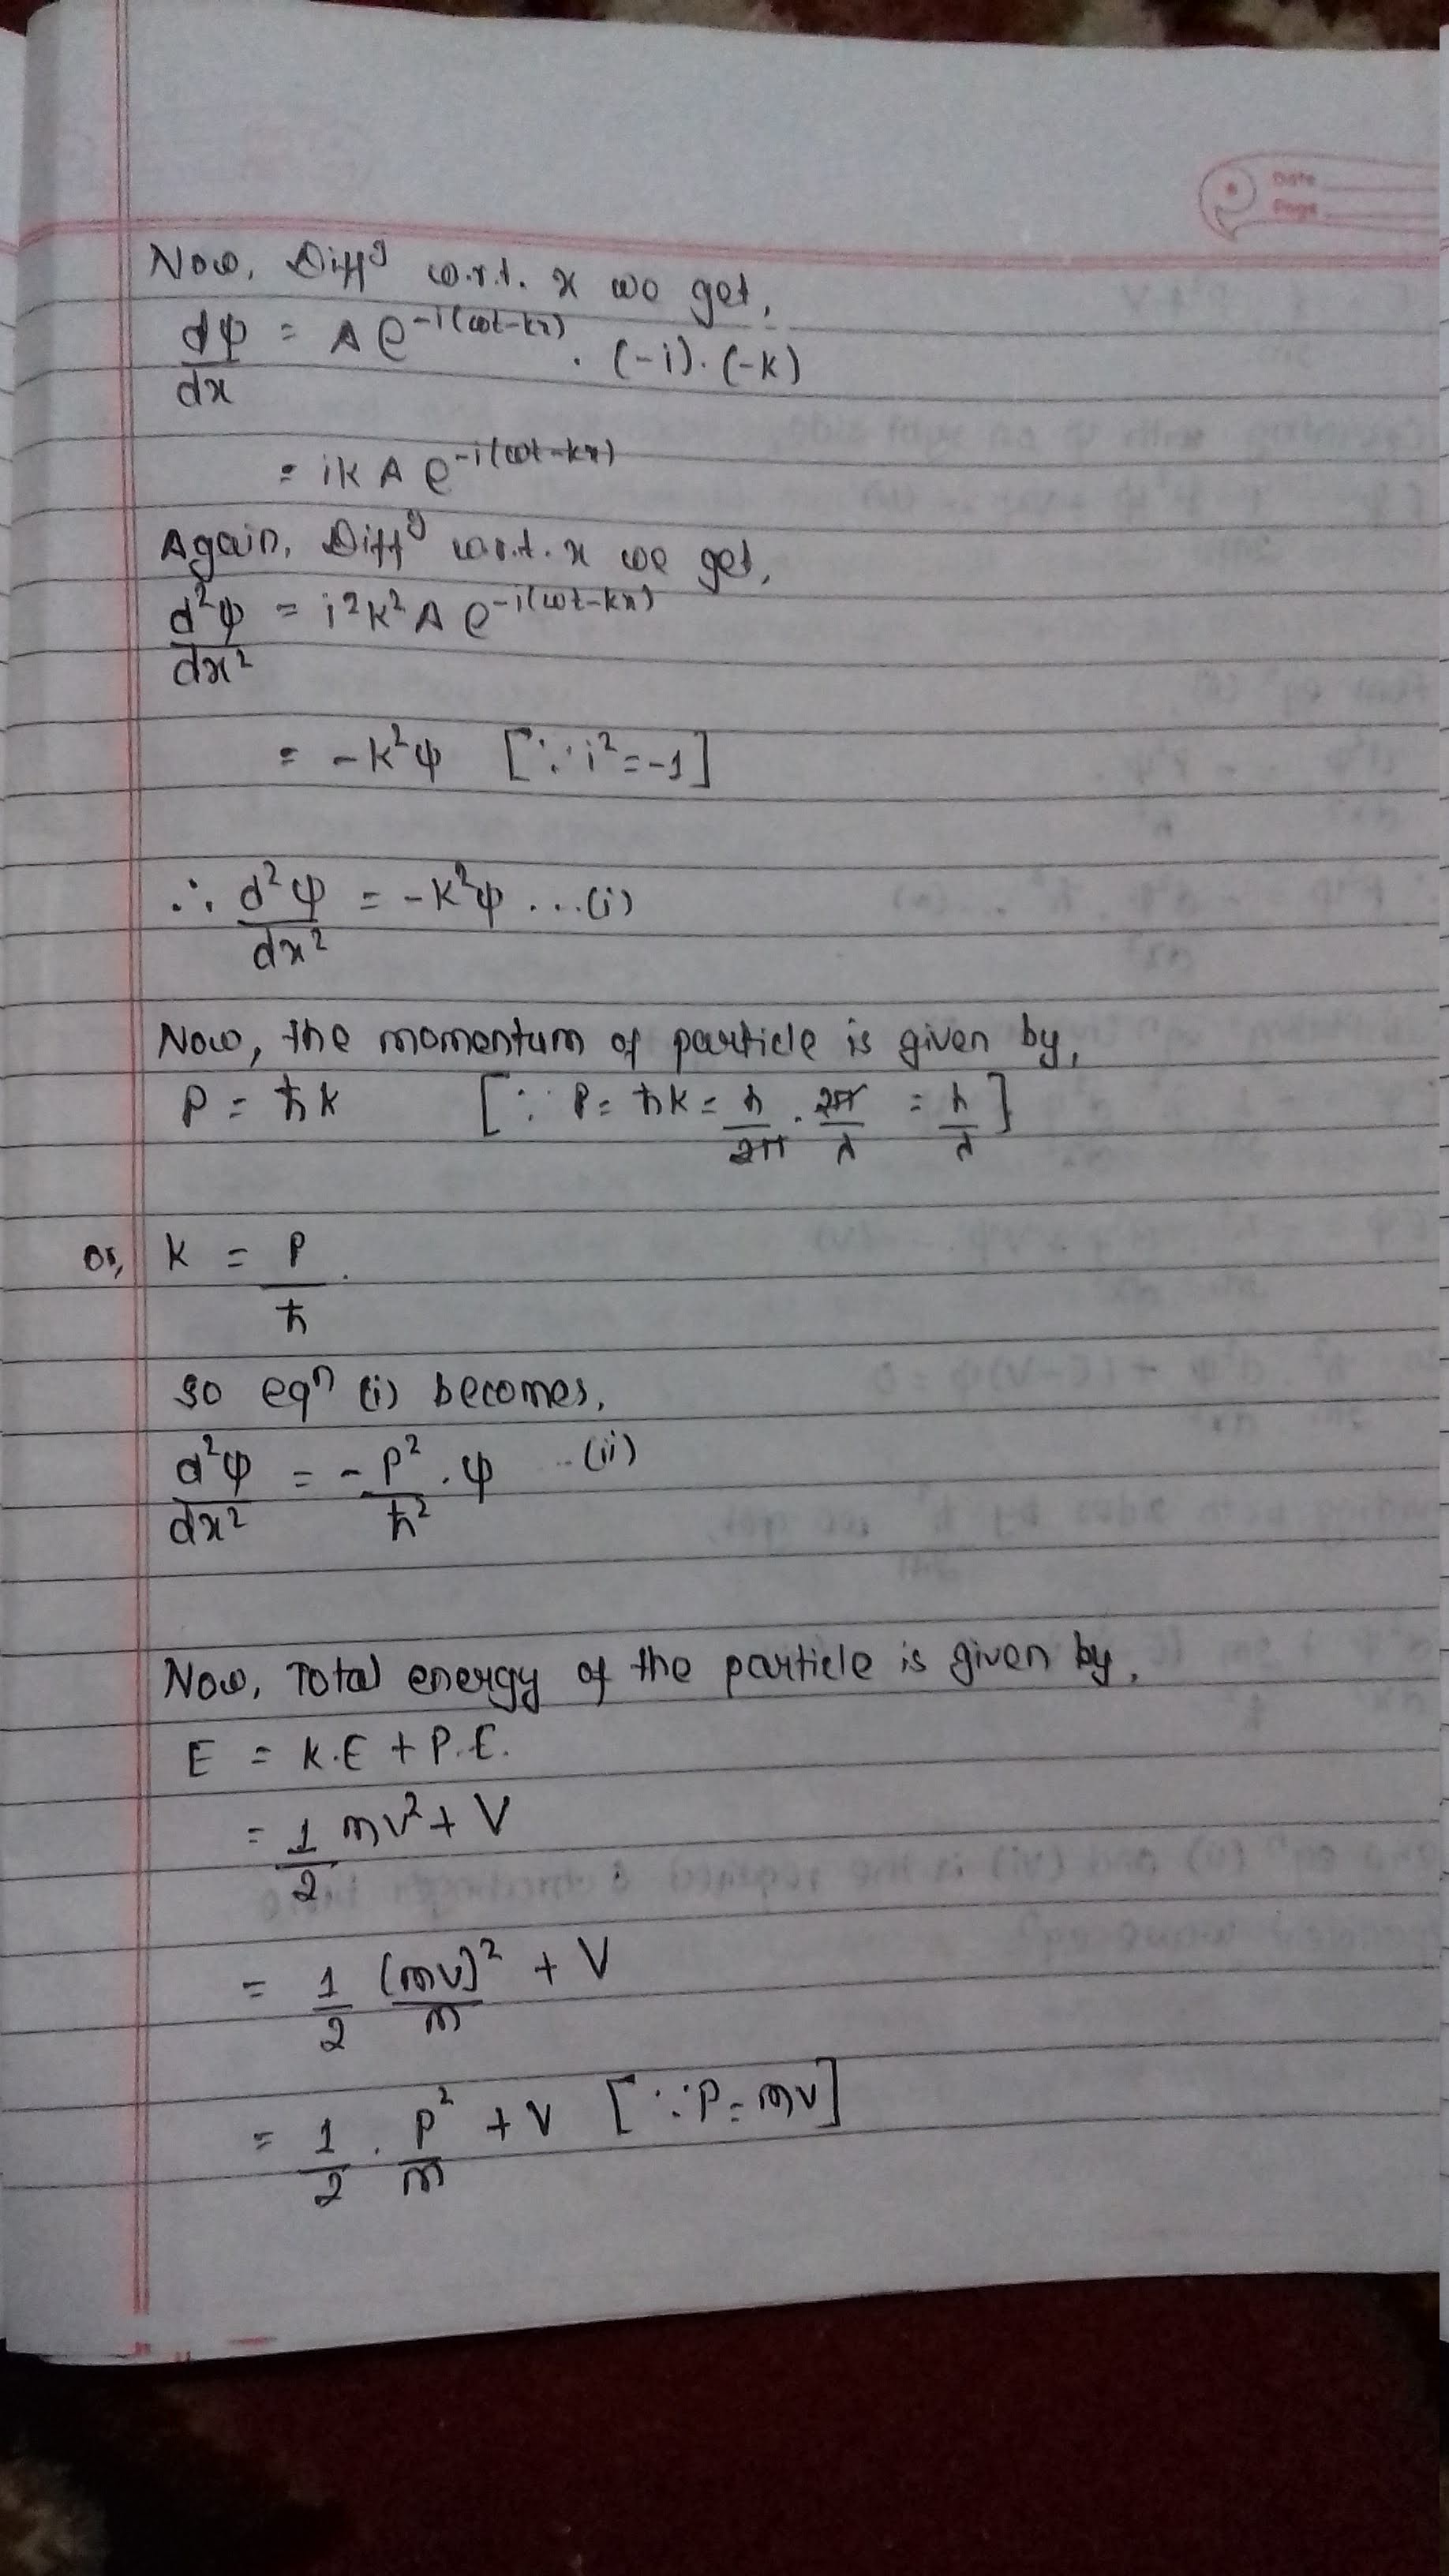 Date
Page
Now, Diffg w.r.t. x we get,
dψ/dx = A e^{-i(ωt-kx)} . (-i). (-k)
= ik A e^{-i(ωt-kx)}
Again, Diffg w.r.t. x we get,
d²ψ/dx² = i²k² A e^{-i(ωt-kx)}
= -k²ψ [∵ i² = -1]
∴ d²ψ/dx² = -k²ψ ...(i)
Now, the momentum of particle is given by,
P = ħk [∵ P = ħk = h/2π . 2π/λ = h/λ]
or, k = P/ħ.
so eqⁿ (i) becomes,
d²ψ/dx² = -P²/ħ² . ψ ..(ii)
Now, Total energy of the particle is given by,
E = K.E + P.E.
= 1/2 mv² + V
= 1/2 (mv)²/m + V
= 1/2 . P²/m + V [∵ P = mv]